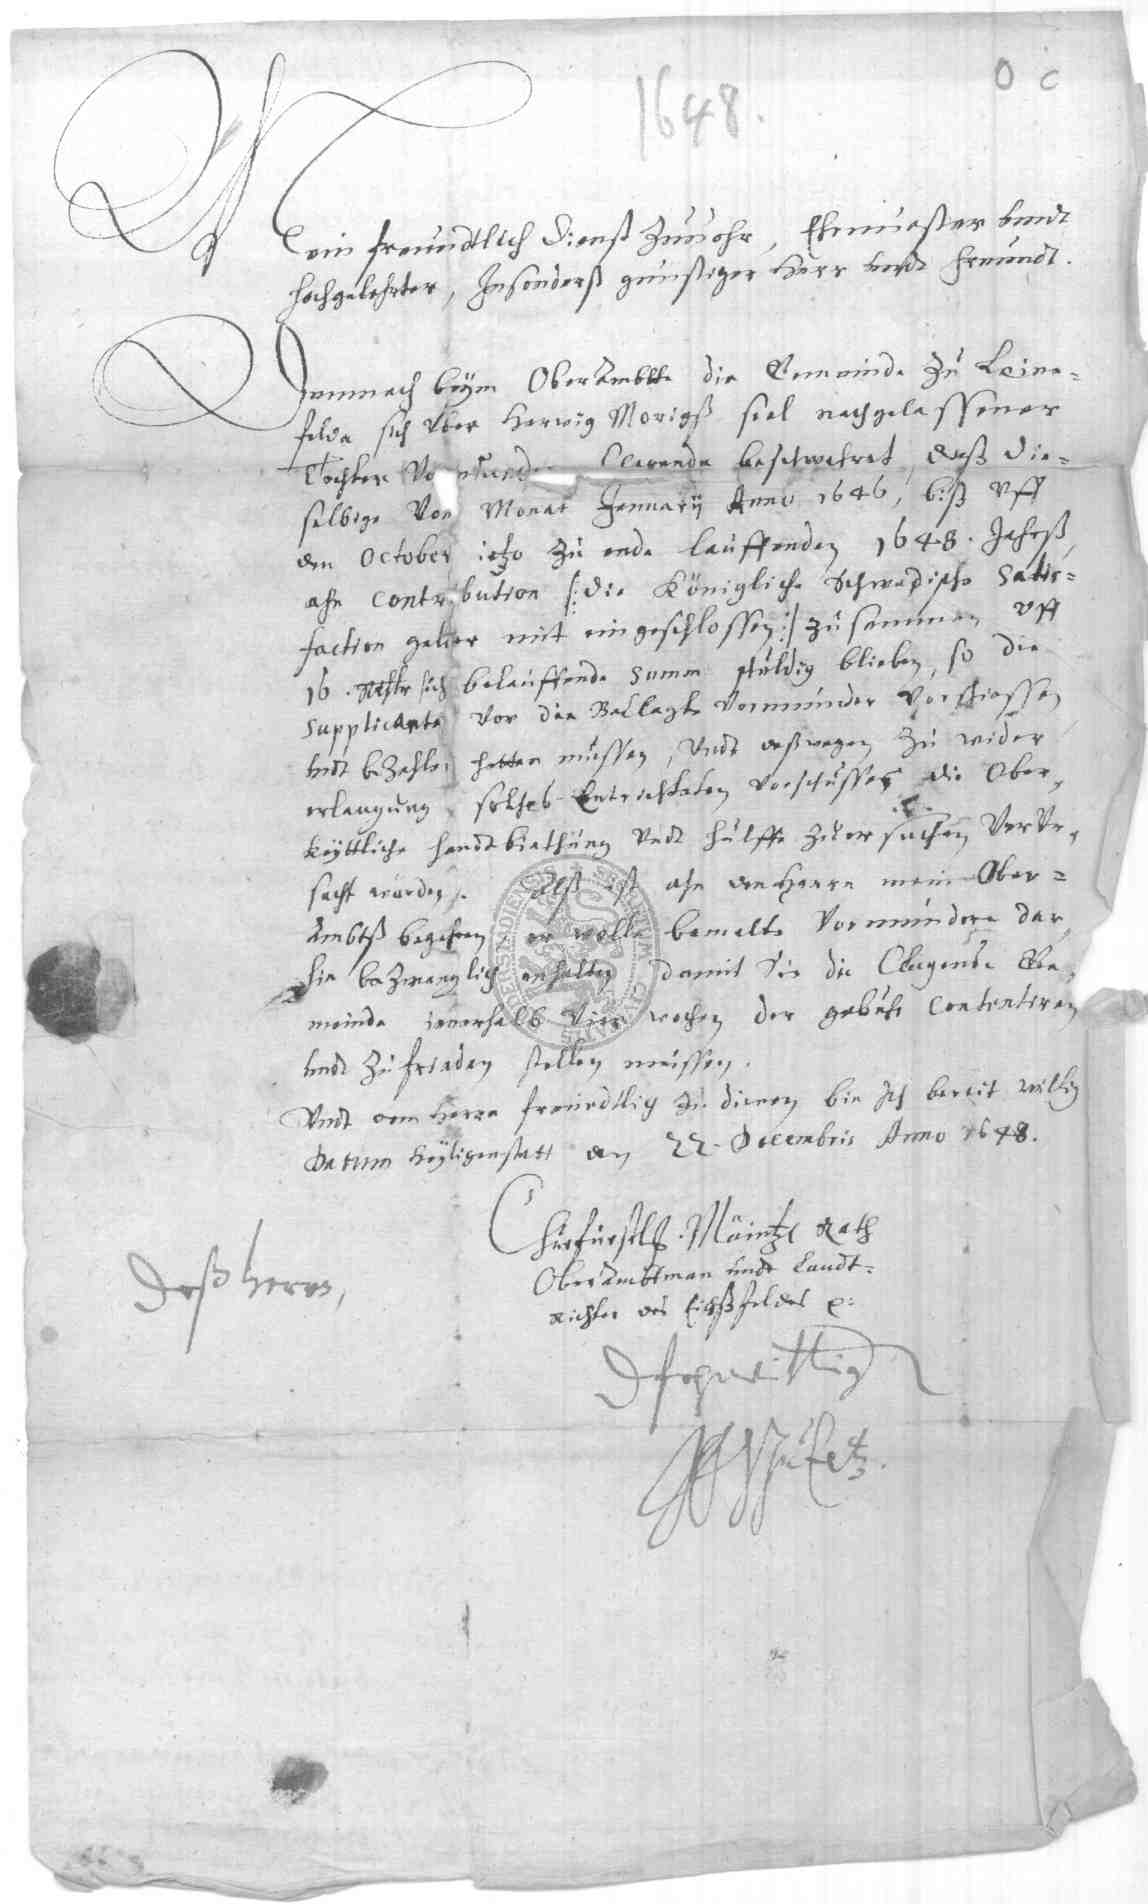 1648.
O C
Mein freundtlich Dienst Zuuohr, Ehrnuester vundt
Hochgelehrter, Insonderß günstiger Herr vndt Freundt.
Demnach beym OberAmbtte die Gemeinde Zu Leine-
felda sich über Herwig Morigß seel nachgelassener
Tochter beschwehret, daß die-
selbige Von Monat Januarÿ Anno 1646, biß vff
den October ietzo zu ende lauffenden 1648. Jahrß
ahn Contribution /: die Königliche Schwedische Satis-
faction gelter mit eingeschlossen :/ zusammen vff
16. Rthlr sich belauffende Summ schuldig blieben, so die
Supplicante vor die Beclagte Vormünder Vorschiessen
vndt beZahlen hetten müssen, Vndt deßwegen zu wider
erlangung solches Entrichteten Vorschusses die Ober-
keyttliche handtbiethung Vndt hülffe zu ersuchen VerVr-
sacht würden. Alß ist ahn den Herrn mein Ober-
Ambtß begehren, er wolle bemelte Vormündere dar-
hin beZwenglich anhalten, damit sie die Clagende Ge-
meinde innerhalb Vier wochen der gebühr Contentiren
vndt Zufrieden stellen müssen.
Vndt dem Herrn freundtlich zu dienen bin Ich bereit willig
Datum Heyligenstatt den 22. Decembris Anno 1648.
Churfürstl. Mäintz. Rath
OberAmbtman undt Landt-
Richter des Eichßfeldes
Deß Herrn,